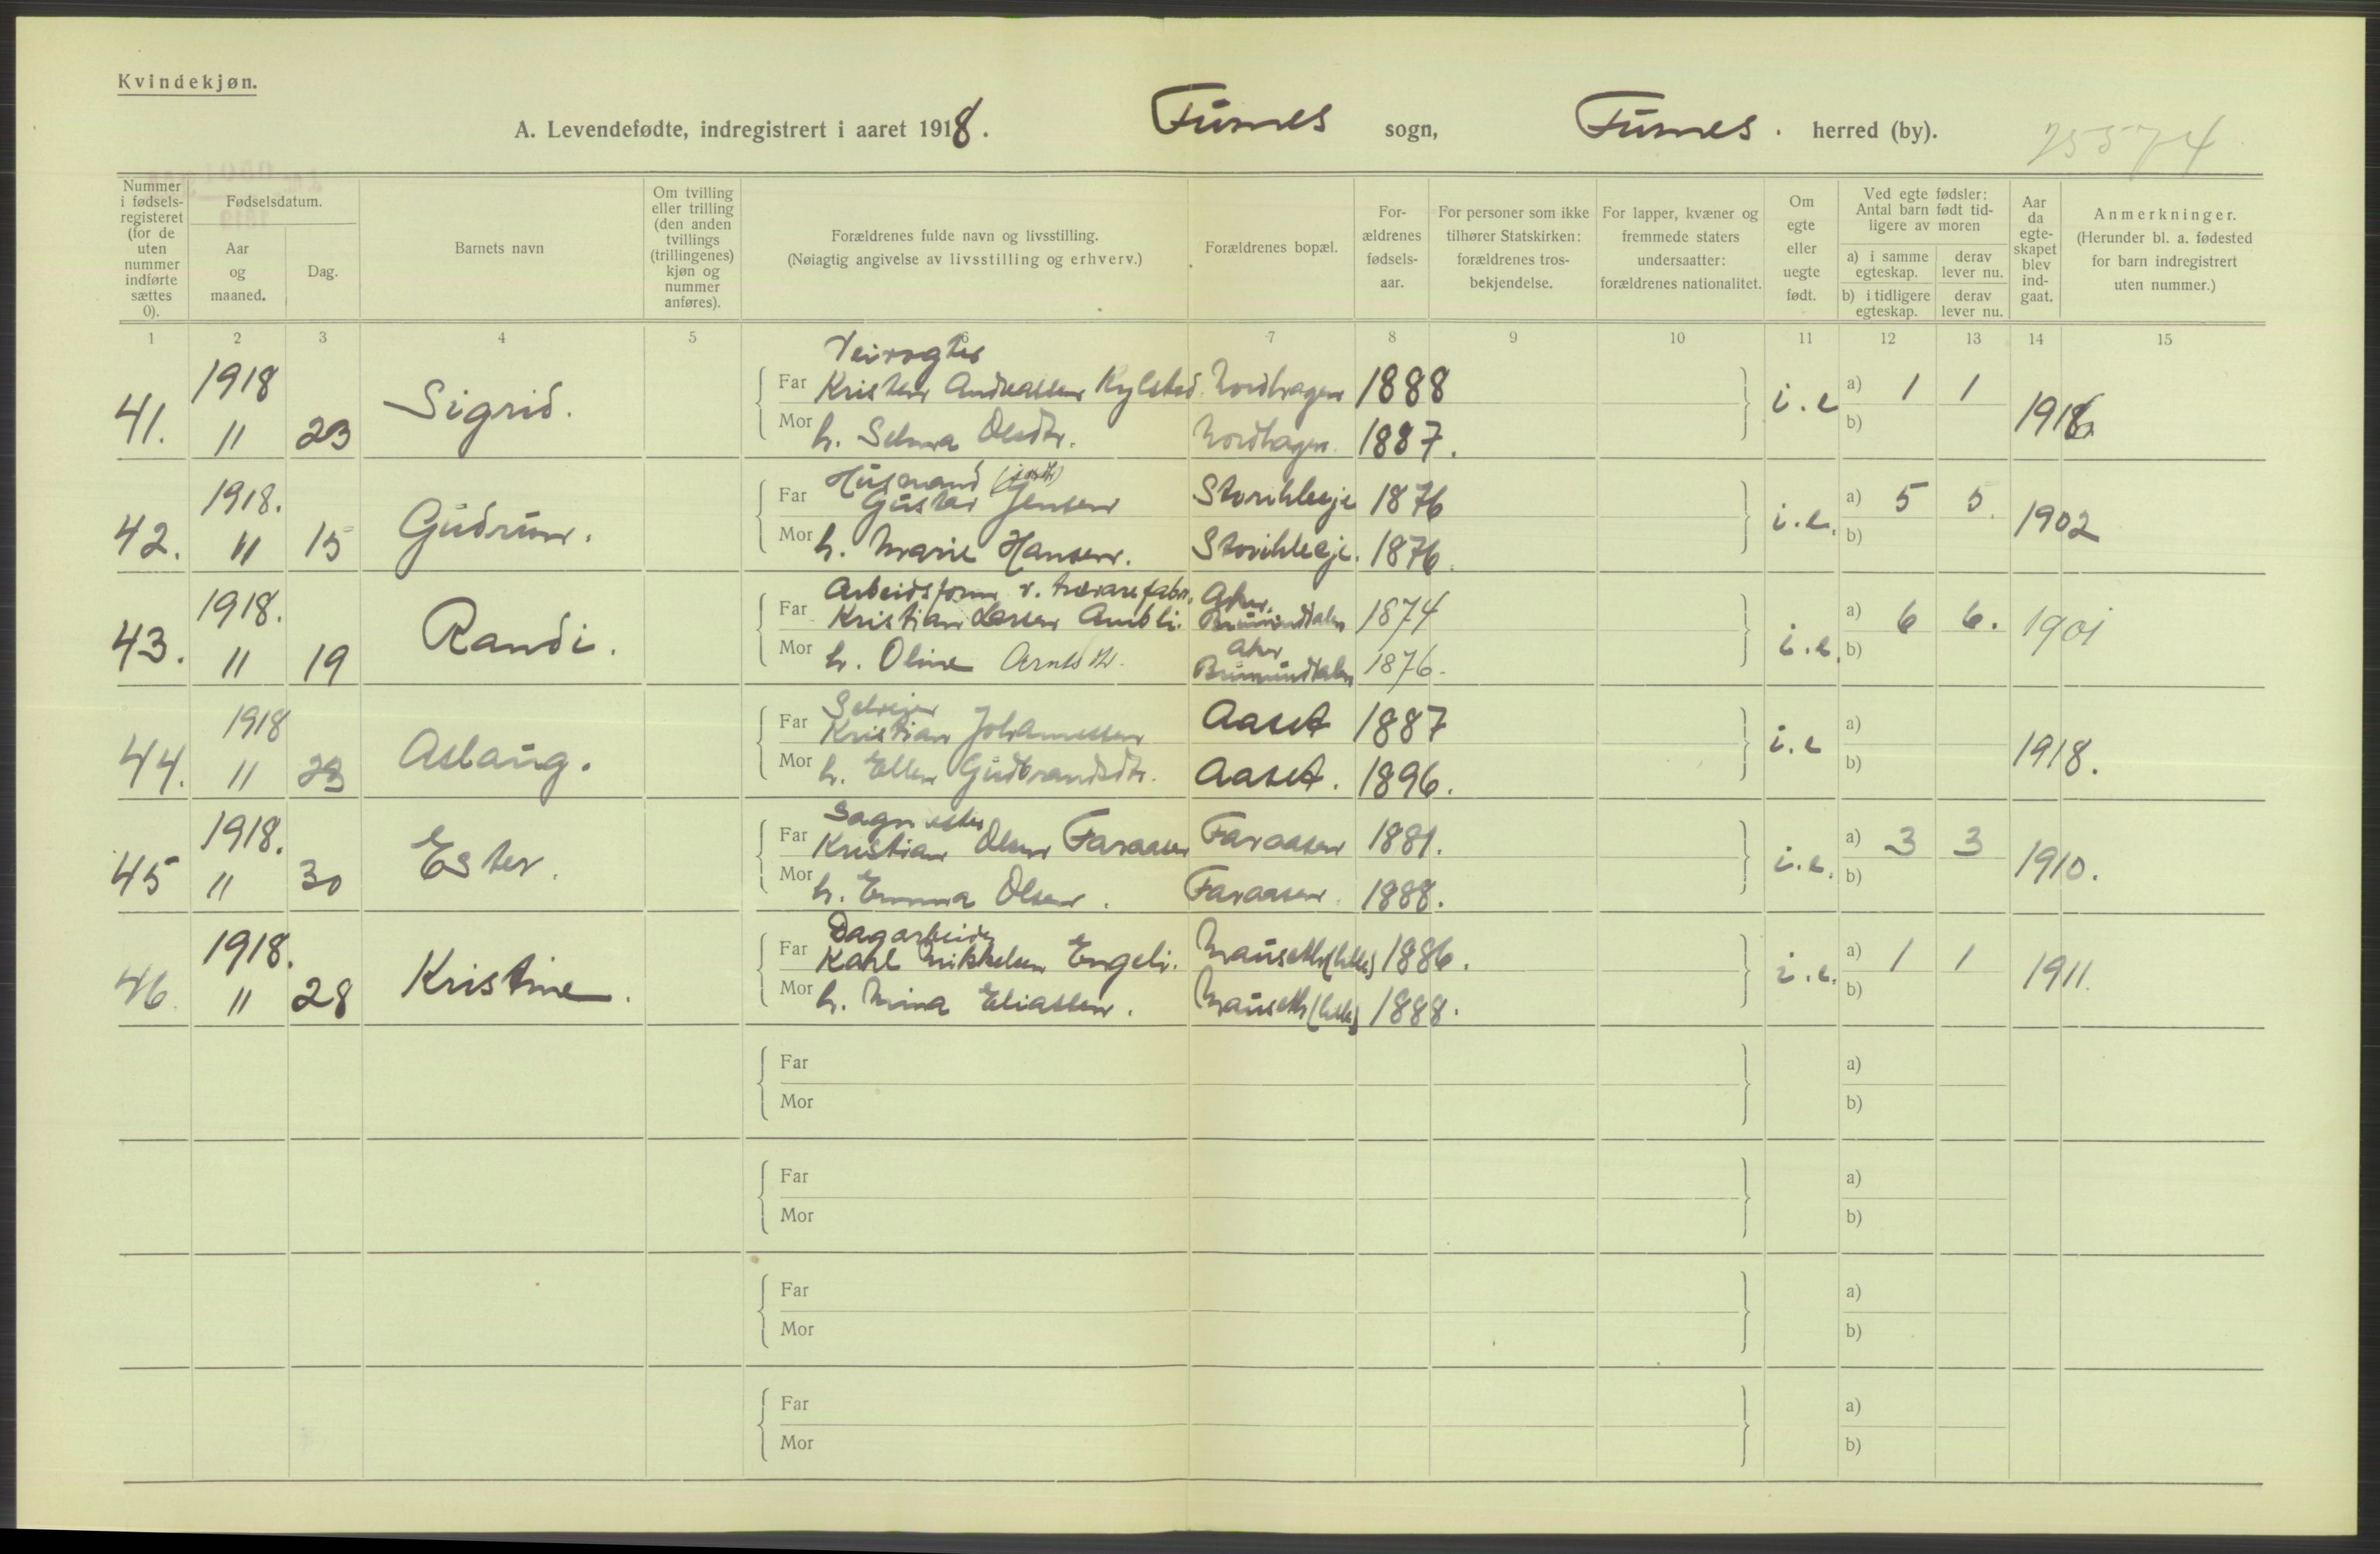 Kvindekjøn.
A. Levendefødte, indregistrert i aaret 1918. Furnes sogn, Furnes. herred (by). 75574
Nummer i fødsels-registeret (for de uten nummer indførte sættes 0).
Fødselsdatum.
Aar og maaned.
Dag.
Barnets navn
Om tvilling eller trilling (den anden tvillings (trillingenes) kjøn og nummer anføres).
Forældrenes fulde navn og livsstilling.
(Nøiagtig angivelse av livsstilling og erhverv.)
Forældrenes bopæl.
For-ældrenes fødsels-aar.
For personer som ikke tilhører Statskirken: forældrenes tros-bekjendelse.
For lapper, kvæner og fremmede staters undersaatter: forældrenes nationalitet.
Om egte eller uegte født.
Ved egte fødsler: Antal barn født tid-ligere av moren
a) i samme egteskap.
derav lever nu.
b) i tidligere egteskap.
derav lever nu.
Aar da egte-skapet blev ind-gaat.
Anmerkninger.
(Herunder bl. a. fødested for barn indregistrert uten nummer.)
1 2 3 4 5 6 7 8 9 10 11 12 13 14 15
41. 1918 11 23 Sigrid.
Veivogter
Far Kristen Andreassen Kylstad. Nordhagen 1888
Mor h. Selma Olsdtr. Nordhagen. 1887.
i. e a) 1 1 b) 1916.
42. 1918. 11 15 Gudrun.
Husmand
Far Gustav Jensen Storihleeje 1876
Mor h. Marie Hansen. Storihleeje. 1876.
i. e. a) 5 5. b) 1902
43. 1918. 11 19 Randi.
Arbeidsform. v. trævarefabr.
Far Kristian Larsen Ambli. Aker, Brumunddalen 1874
Mor h. Oline Arnesdtr. Aker Brumunddalen 1876.
i. e. a) 6 6. b) 1901
44. 1918 11 23 Aslaug.
Selveier
Far Kristian Johannessen Aaset 1887
Mor h. Ellen Gudbrandsdtr. Aaset. 1896.
i. e a) b) 1918.
45 1918. 11 30 Ester.
Far Kristian Olsen Faraasen Faraasen 1881.
Mor h. Emma Olsen. Faraasen. 1888.
i. e. a) 3 3 b) 1910.
46. 1918. 11 28 Kristine.
Dagarbeider
Far Karl Mikkelsen Engeli. Mauseth (lille) 1886.
Mor h. Mina Eliassen. Mauseth (lille) 1888.
i. e. a) 1 1 b) 1911.
Far a)
Mor b)
Far a)
Mor b)
Far a)
Mor b)
Far a)
Mor b)